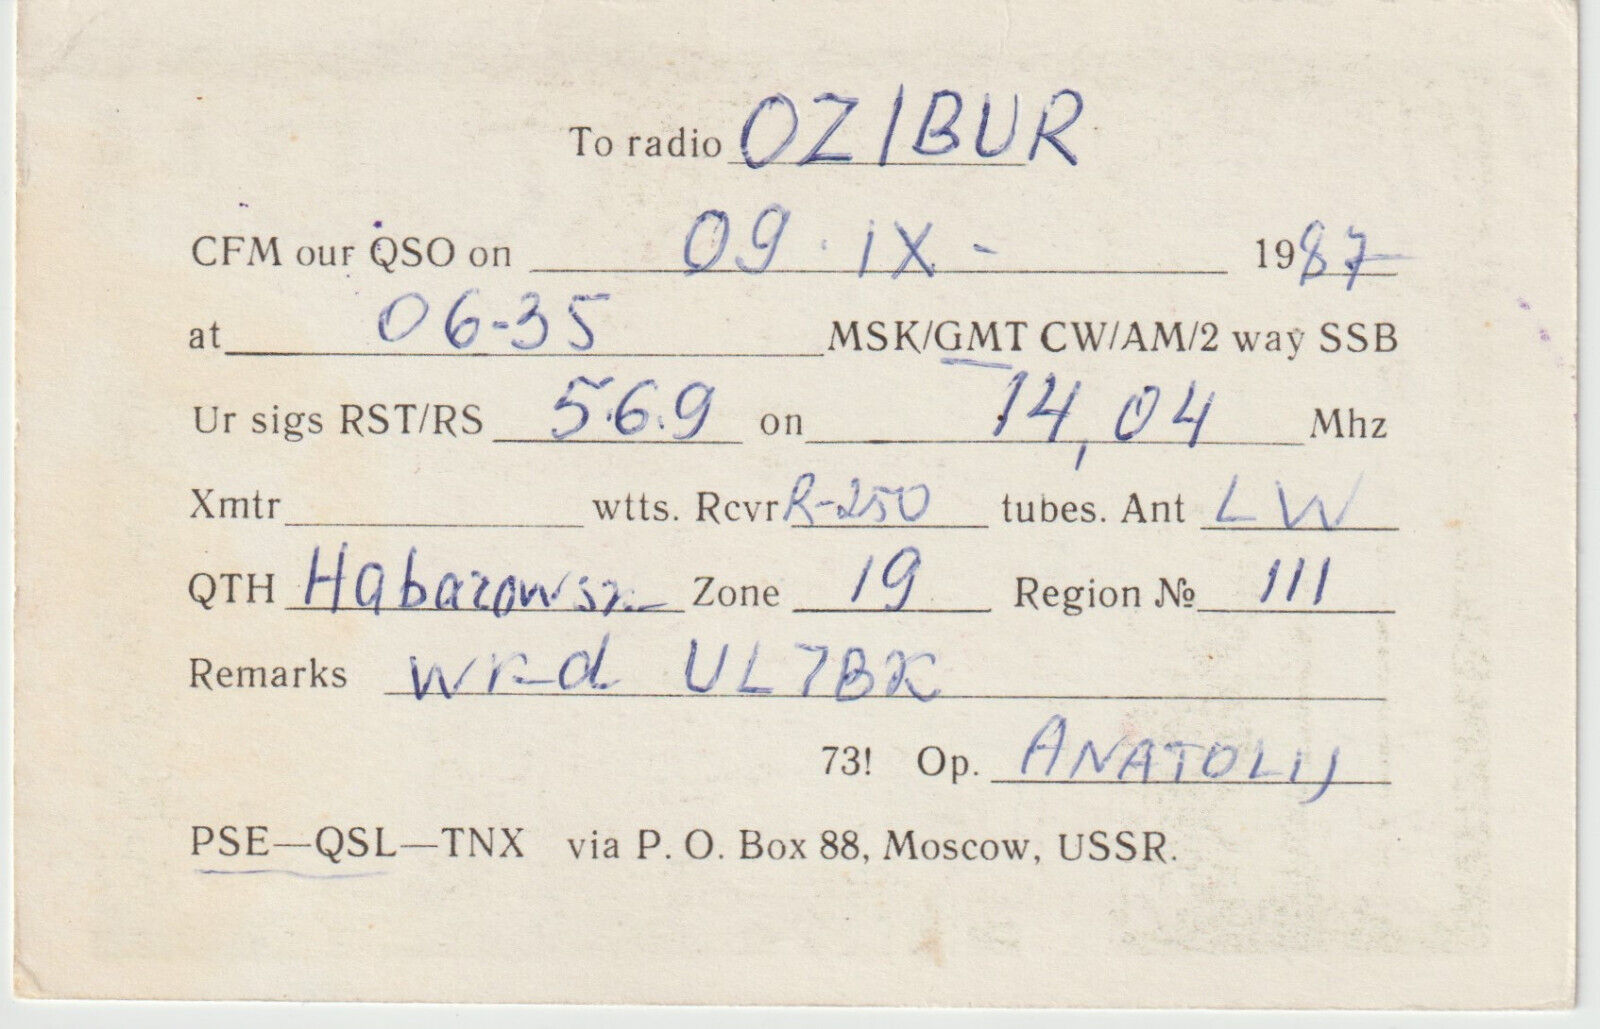 To radio OZ1BUR
CFM our QSO on 09 · IX - 1987
at 06-35 MSK/GMT CW/AM/2 way SSB
Ur sigs RST/RS 5.6.9 on 14,04 Mhz
Xmtr wtts. Rcvr R-250 tubes. Ant LW
QTH Zone 19 Region № 111
Remarks UL7BK
73! Op. ANATOLIJ
PSE—QSL—TNX via P. O. Box 88, Moscow, USSR.